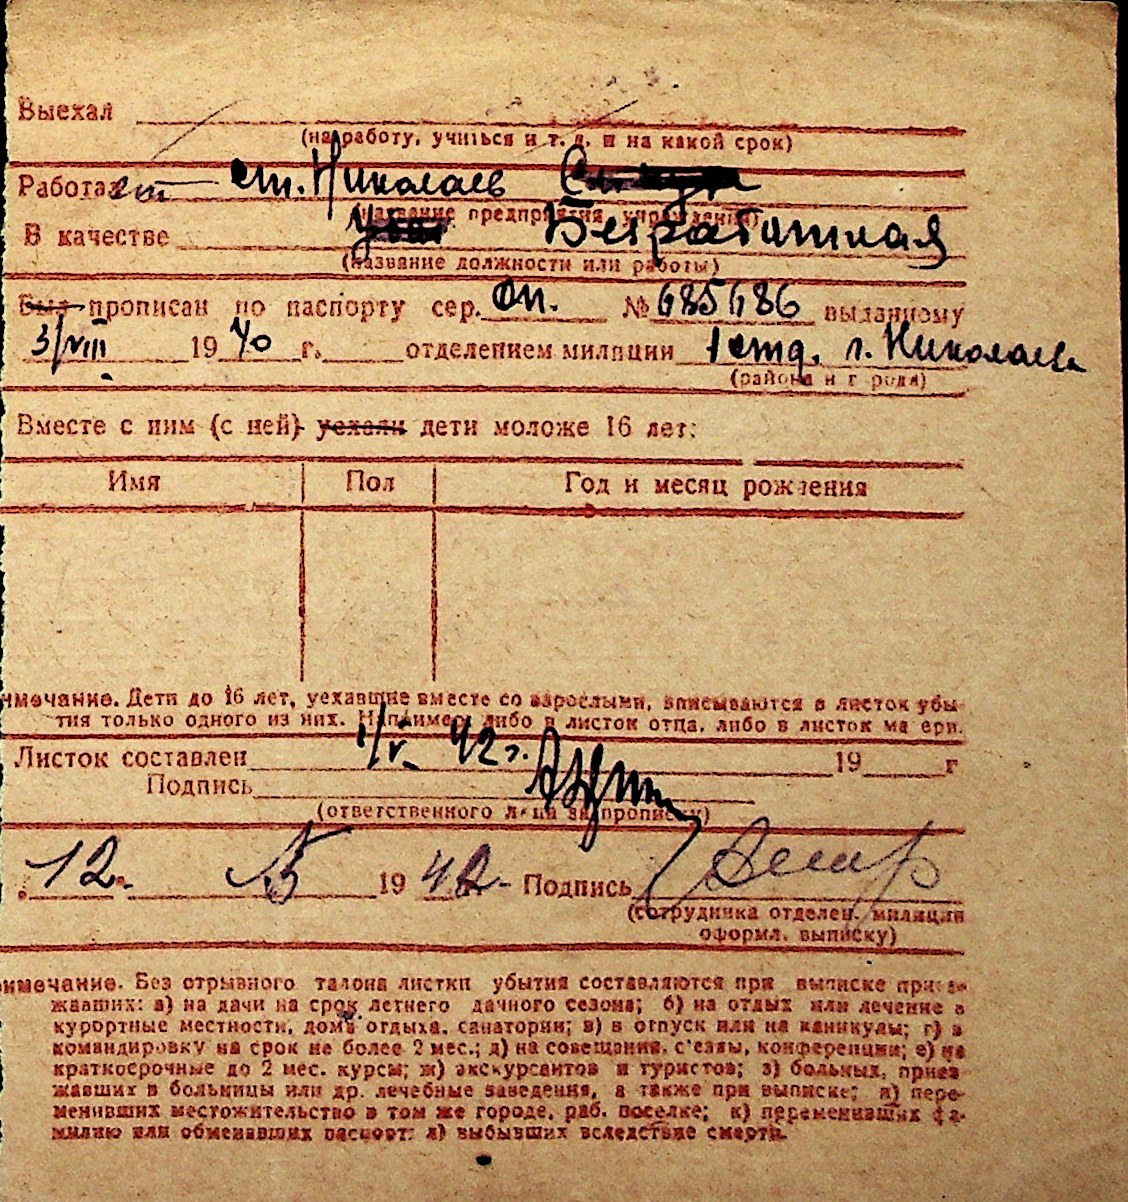 Выехал
(на работу, учиться и т. д. и на какой срок)
Работает ст. Николаев
(название предприятия, учреждения)
В качестве Безработная
(название должности или работы)
Был прописан по паспорту сер. ОП. № 685686 выданному
3/VIII 1940 г. отделением милиции 1 отд. г. Николаева
(района и города)
Вместе с ним (с ней) уехали дети моложе 16 лет:
Имя Пол Год и месяц рождения
имечание. Дети до 16 лет, уехавшие вместе со взрослыми, вписываются в листок убы-
тия только одного из них. Например, либо в листок отца, либо в листок ма ери.
Листок составлен 1/V 42 г. 19 г
Подпись
(ответственного лица за прописку)
12. 5 1942 Подпись
(сотрудника отделен. милиции
оформл. выписку)
имечание. Без отрывного талона листки убытия составляются при выписке приез-
жавших: а) на дачи на срок летнего дачного сезона; б) на отдых или лечение в
курортные местности, дома отдыха, санатории; в) в отпуск или на каникулы; г) в
командировку на срок не более 2 мес.; д) на совещания, с'езды, конференции; е) на
краткосрочные до 2 мес. курсы; ж) экскурсантов и туристов; з) больных, приез
жавших в больницы или др. лечебные заведения, а также при выписке; и) пере-
менивших местожительство в том же городе, раб. поселке; к) переменивших фа-
милию или обменявших паспорт; л) выбывших вследствие смерти.